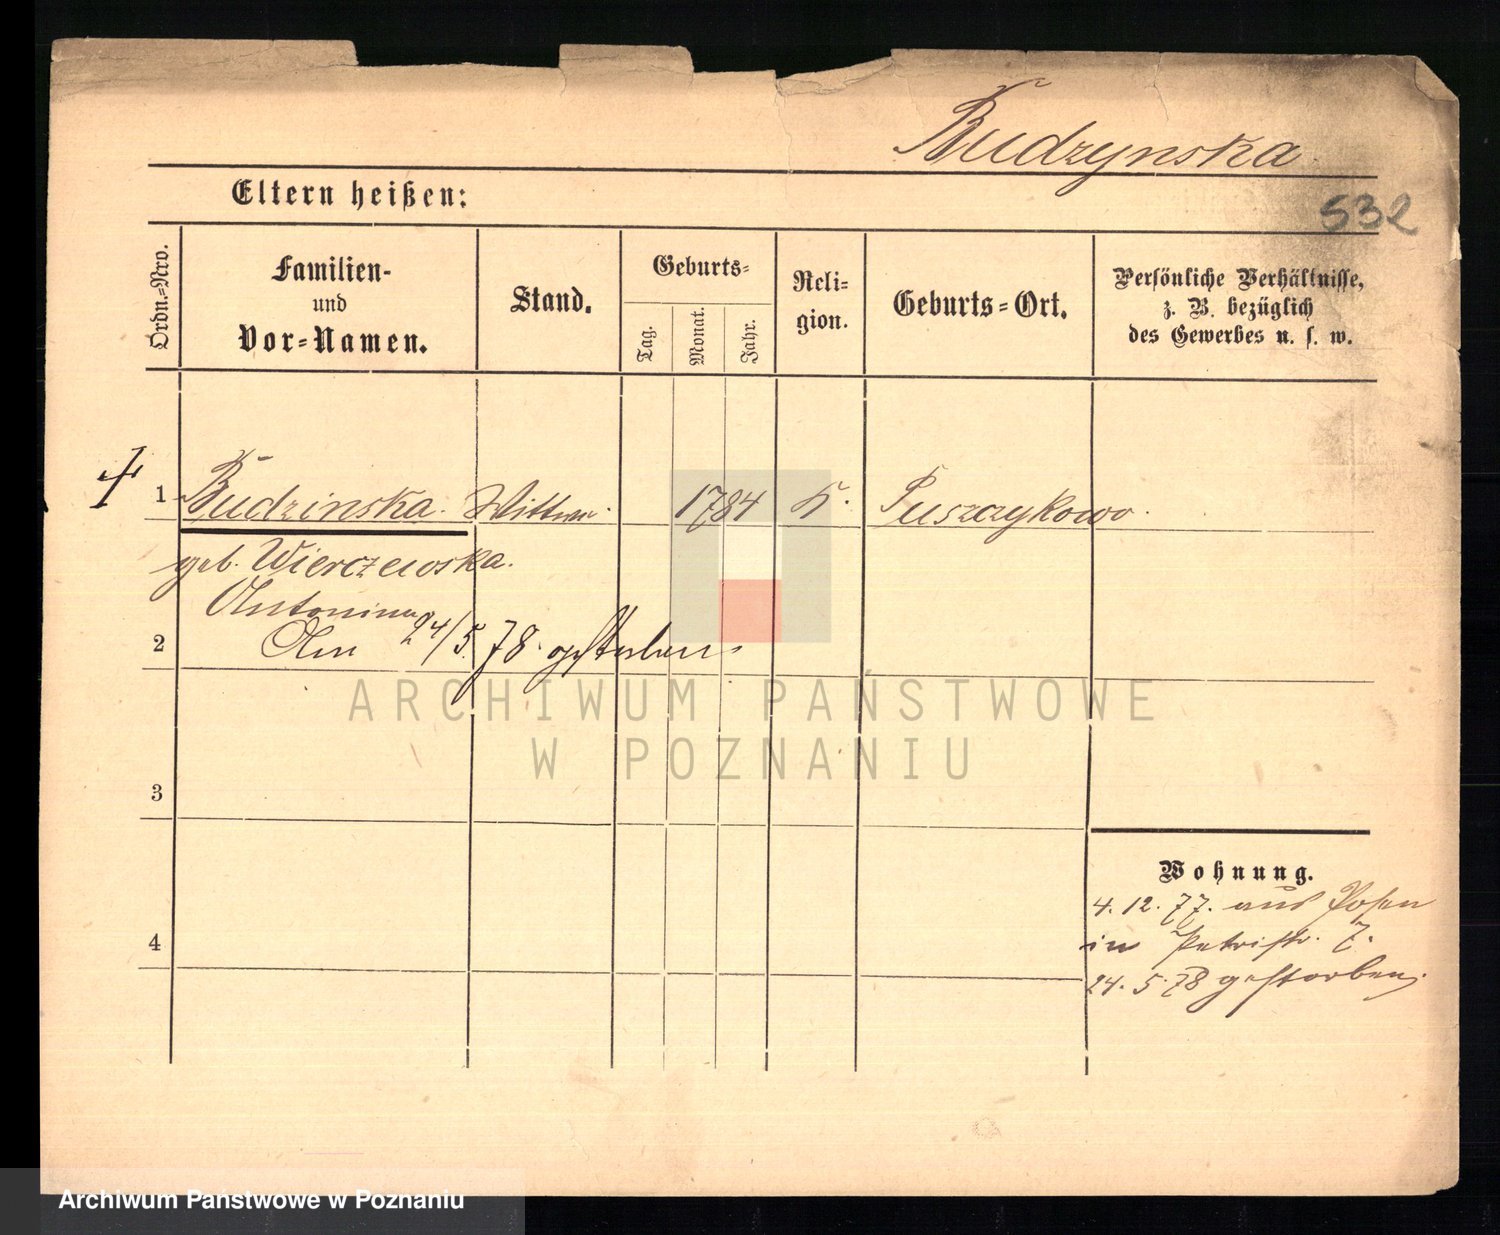 Budzynska
Eltern heißen:
532
Ordn.=Nro.
Familien-
und
Vor=Namen.
Stand.
Geburts=
Tag.
Monat.
Jahr.
Reli=
gion.
Geburts=Ort.
Persönliche Verhältnisse,
z. B. bezüglich
des Gewerbes u. s. w.
1 Budzinska. Wittwe. 1784 K. Puszczykowo.
geb. Wierczewska.
Antonina
2 Am 24/5. 78. gestorben
ARCHIWUM PAŃSTWOWE
W POZNANIU
3
Wohnung.
4. 12. 77. aus Posen
4 in Petristr. 7.
24. 5. 78 gestorben.
Archiwum Państwowe w Poznaniu